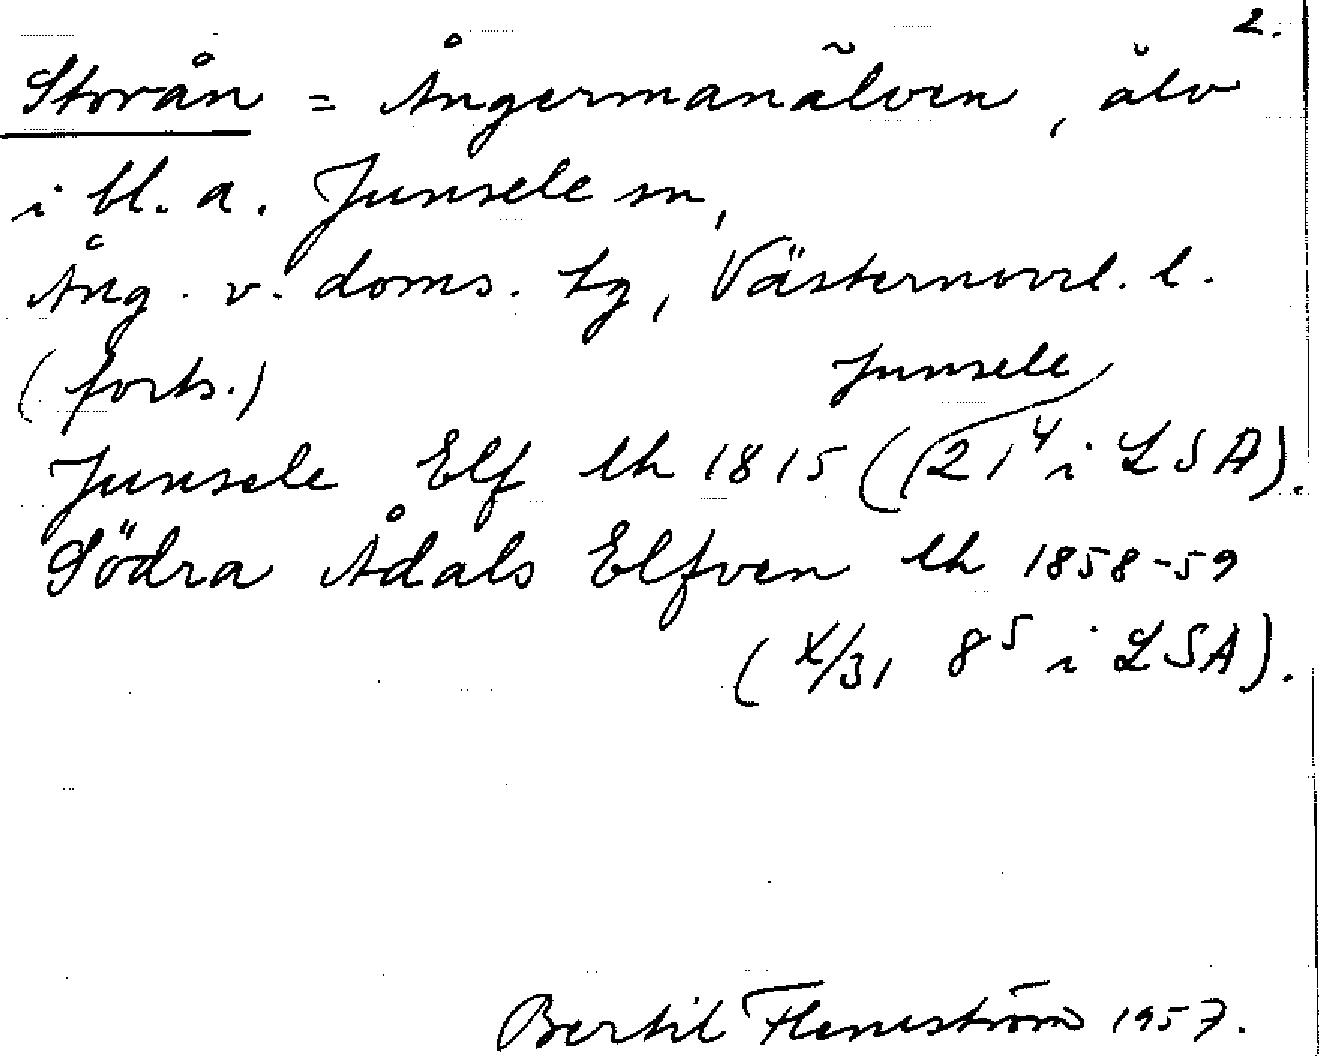 2.
Storån = Ångermanälven, älv
i bl. a. Junsele sn,
Ång. v. doms. tg, Västernorrl. l.
(forts.)
Junsele
Junsele Elf lh 1815 (21⁴ i LSA).
Södra Ådals Elfven lh 1858-59
(X/31 8⁵ i LSA).
Bertil Flemström 1957.